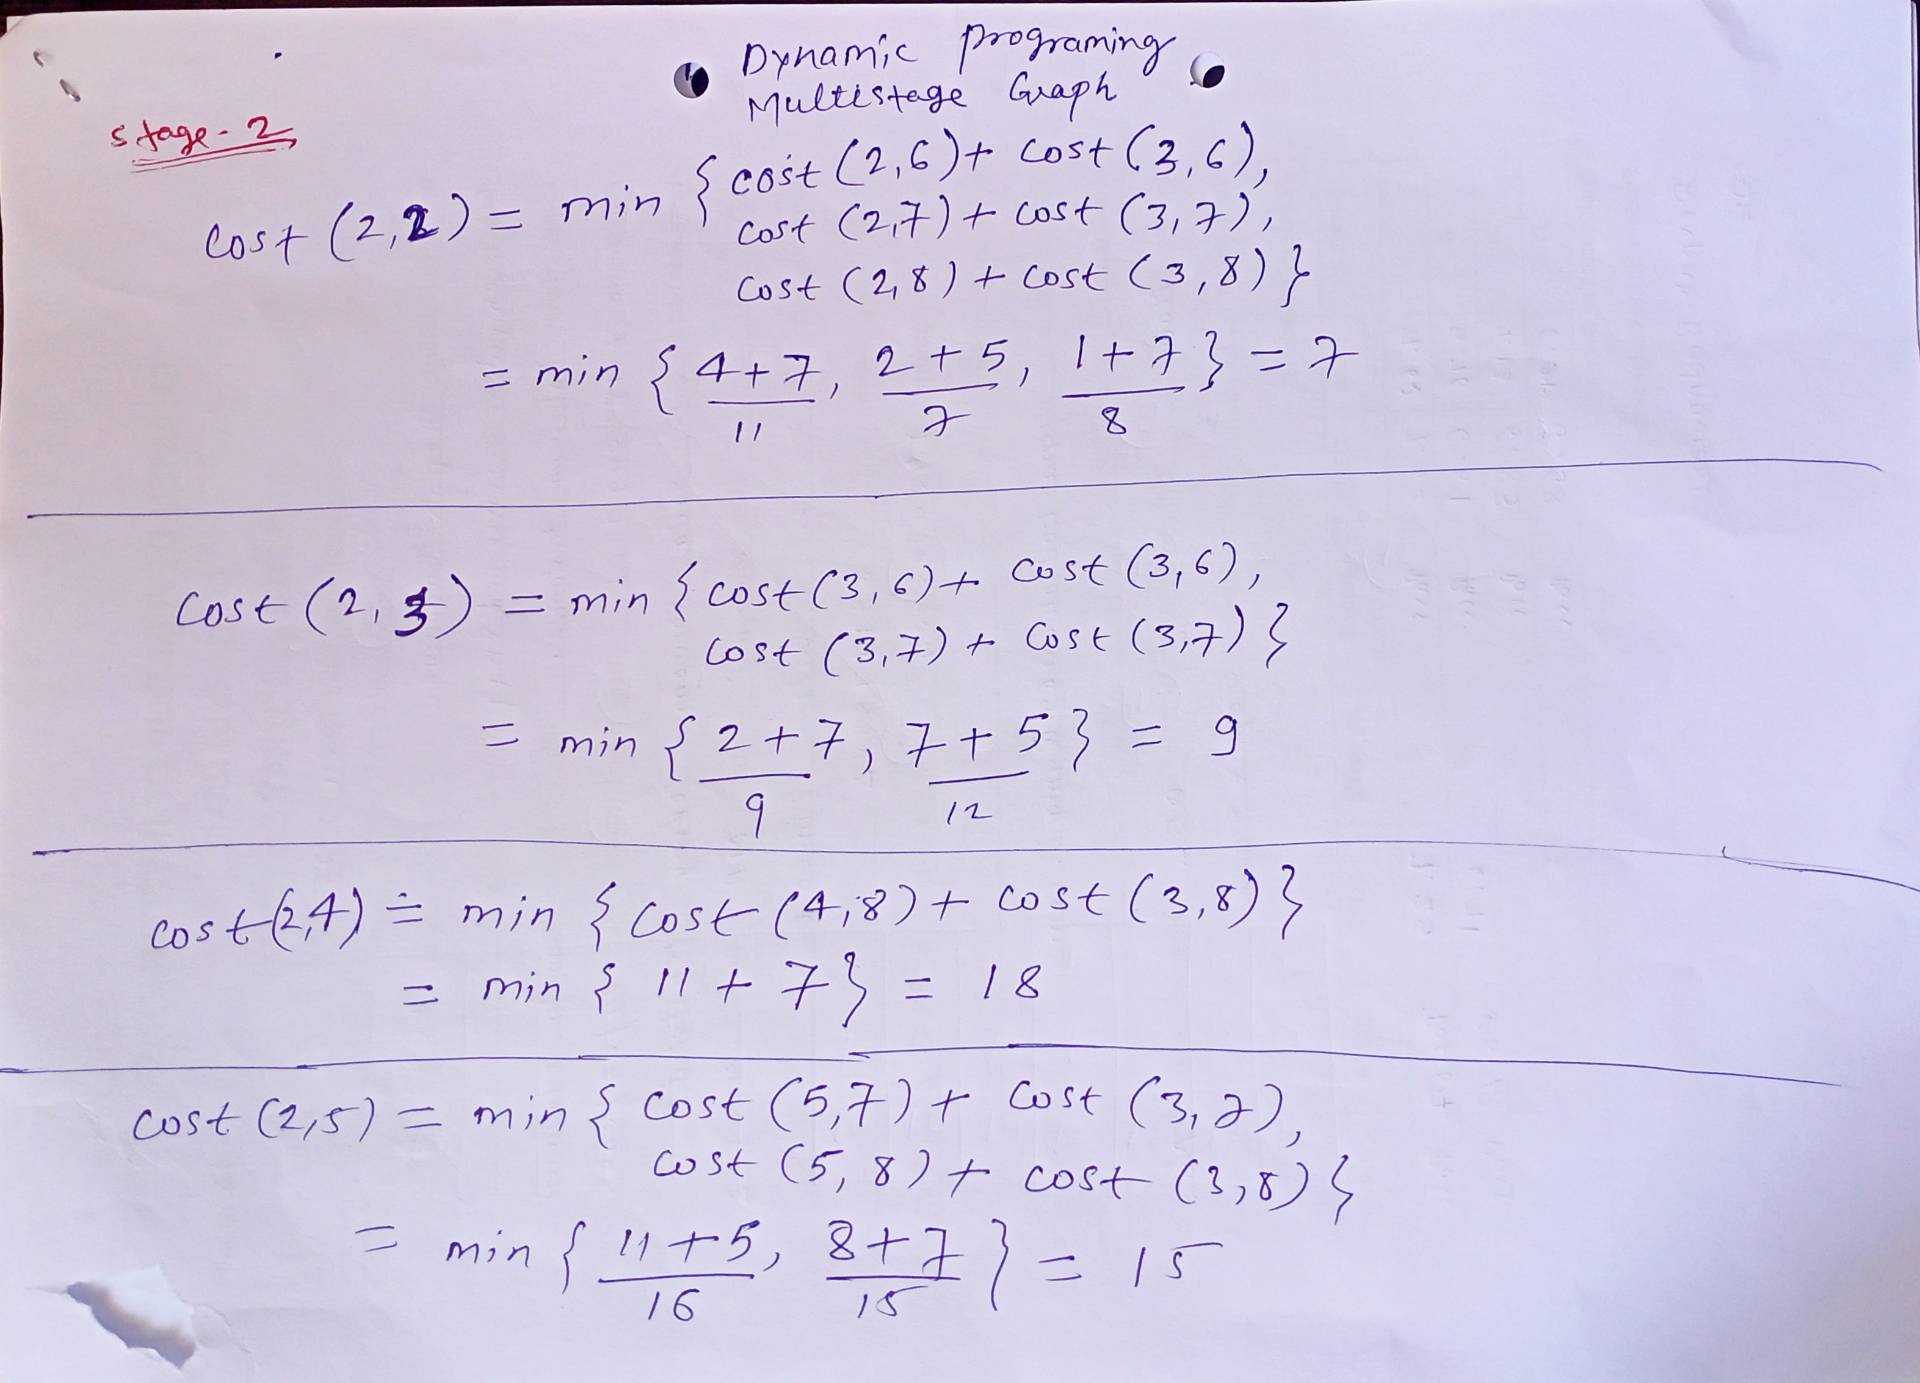 Dynamic programing
Multistage Graph
Stage-2
cost (2,2) = min { cost (2,6) + cost (3,6),
cost (2,7) + cost (3,7),
cost (2,8) + cost (3,8) }
= min { 4+7, 2+5, 1+7 } = 7
11 7 8
cost (2,3) = min { cost (3,6) + cost (3,6),
cost (3,7) + cost (3,7) }
= min { 2+7, 7+5 } = 9
9 12
cost (2,4) = min { cost (4,8) + cost (3,8) }
= min { 11+7 } = 18
cost (2,5) = min { cost (5,7) + cost (3,7),
cost (5,8) + cost (3,8) }
= min { 11+5, 8+7 } = 15
16 15